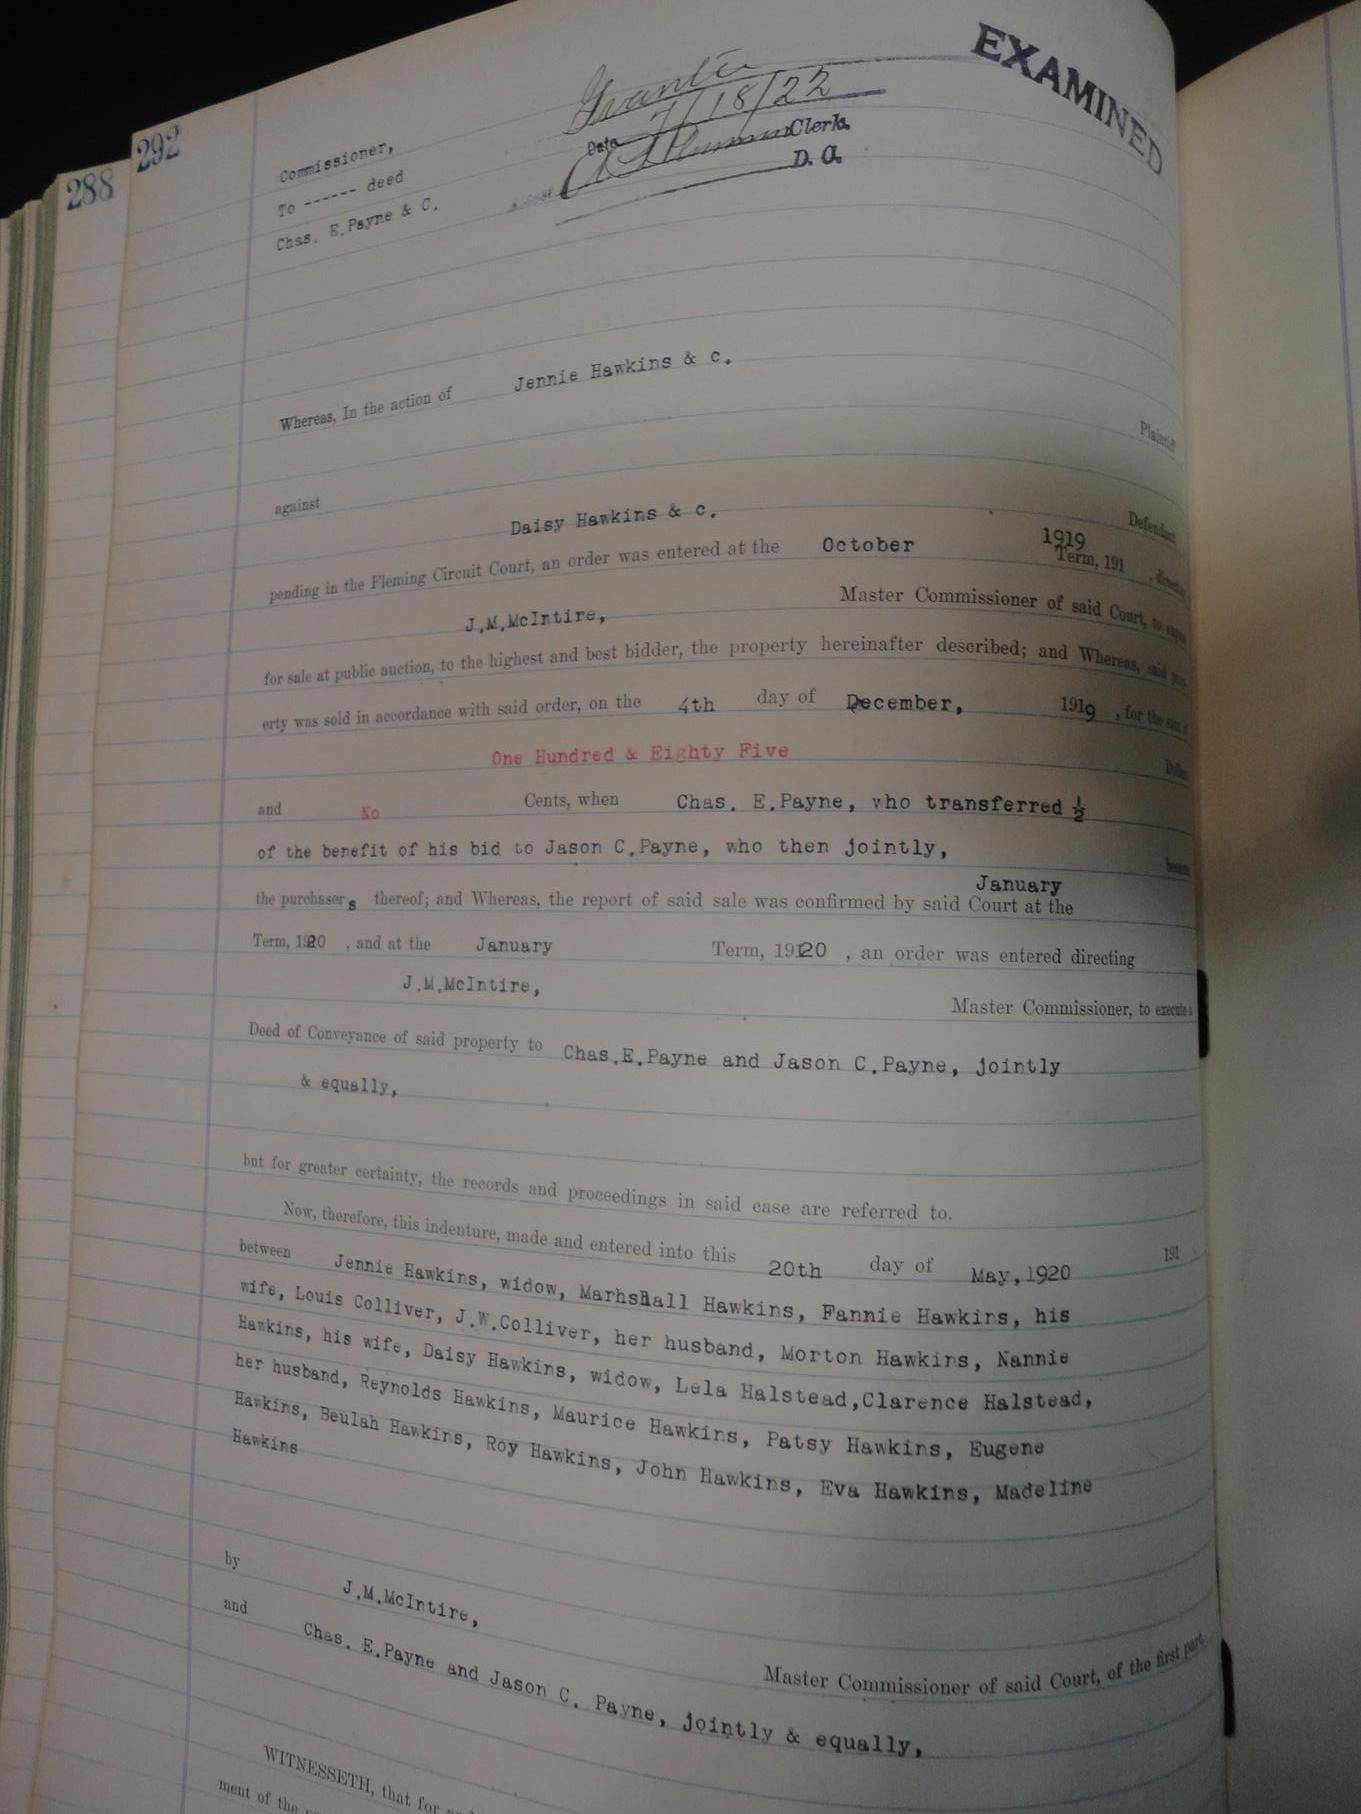 EXAMINED
292
288
Grantee
Date 7/18/22
Clerk
D. C.
Commissioner,
To ------ deed
Chas. E.Payne & C.
Whereas, In the action of Jennie Hawkins & c.
Plaintiff
against
Daisy Hawkins & c.
Defendant
pending in the Fleming Circuit Court, an order was entered at the October 1919 Term, 191 , directing
J.M.McIntire, Master Commissioner of said Court, to expose
for sale at public auction, to the highest and best bidder, the property hereinafter described; and Whereas, said prop-
erty was sold in accordance with said order, on the 4th day of December, 1919 , for the sum of
One Hundred & Eighty Five Dollars
and No Cents, when Chas. E.Payne, who transferred ½
of the benefit of his bid to Jason C.Payne, who then jointly, became
the purchasers thereof; and Whereas, the report of said sale was confirmed by said Court at the January
Term, 1920 , and at the January Term, 19120 , an order was entered directing
J.M.McIntire, Master Commissioner, to execute a
Deed of Conveyance of said property to Chas.E.Payne and Jason C.Payne, jointly
& equally,
but for greater certainty, the records and proceedings in said case are referred to.
Now, therefore, this indenture, made and entered into this 20th day of May,1920 191
between Jennie Hawkins, widow, Marhshall Hawkins, Fannie Hawkins, his
wife, Louis Colliver, J.W.Colliver, her husband, Morton Hawkins, Nannie
Hawkins, his wife, Daisy Hawkins, widow, Lela Halstead,Clarence Halstead,
her husband, Reynolds Hawkins, Maurice Hawkins, Patsy Hawkins, Eugene
Hawkins, Beulah Hawkins, Roy Hawkins, John Hawkins, Eva Hawkins, Madeline
Hawkins
by J.M.McIntire,
Master Commissioner of said Court, of the first part
and Chas. E.Payne and Jason C. Payne, jointly & equally,
WITNESSETH, that for
ment of the